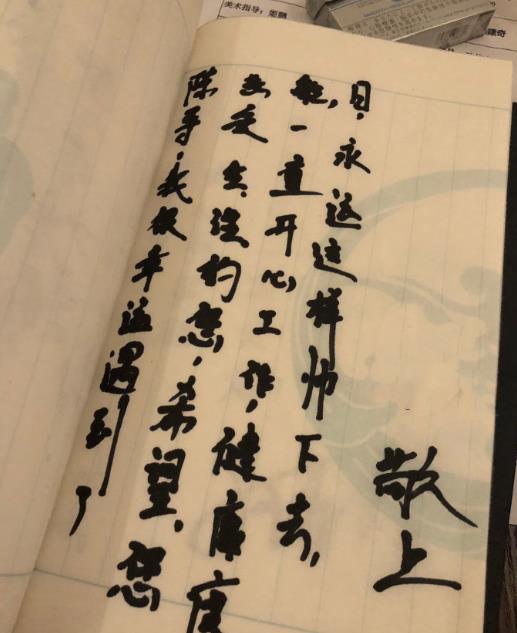 美术指导：
陈导，我很幸运遇到了
热爱生活的您，希望，您
能，一直开心工作，健康度
日，永远这样帅下去，
敬上